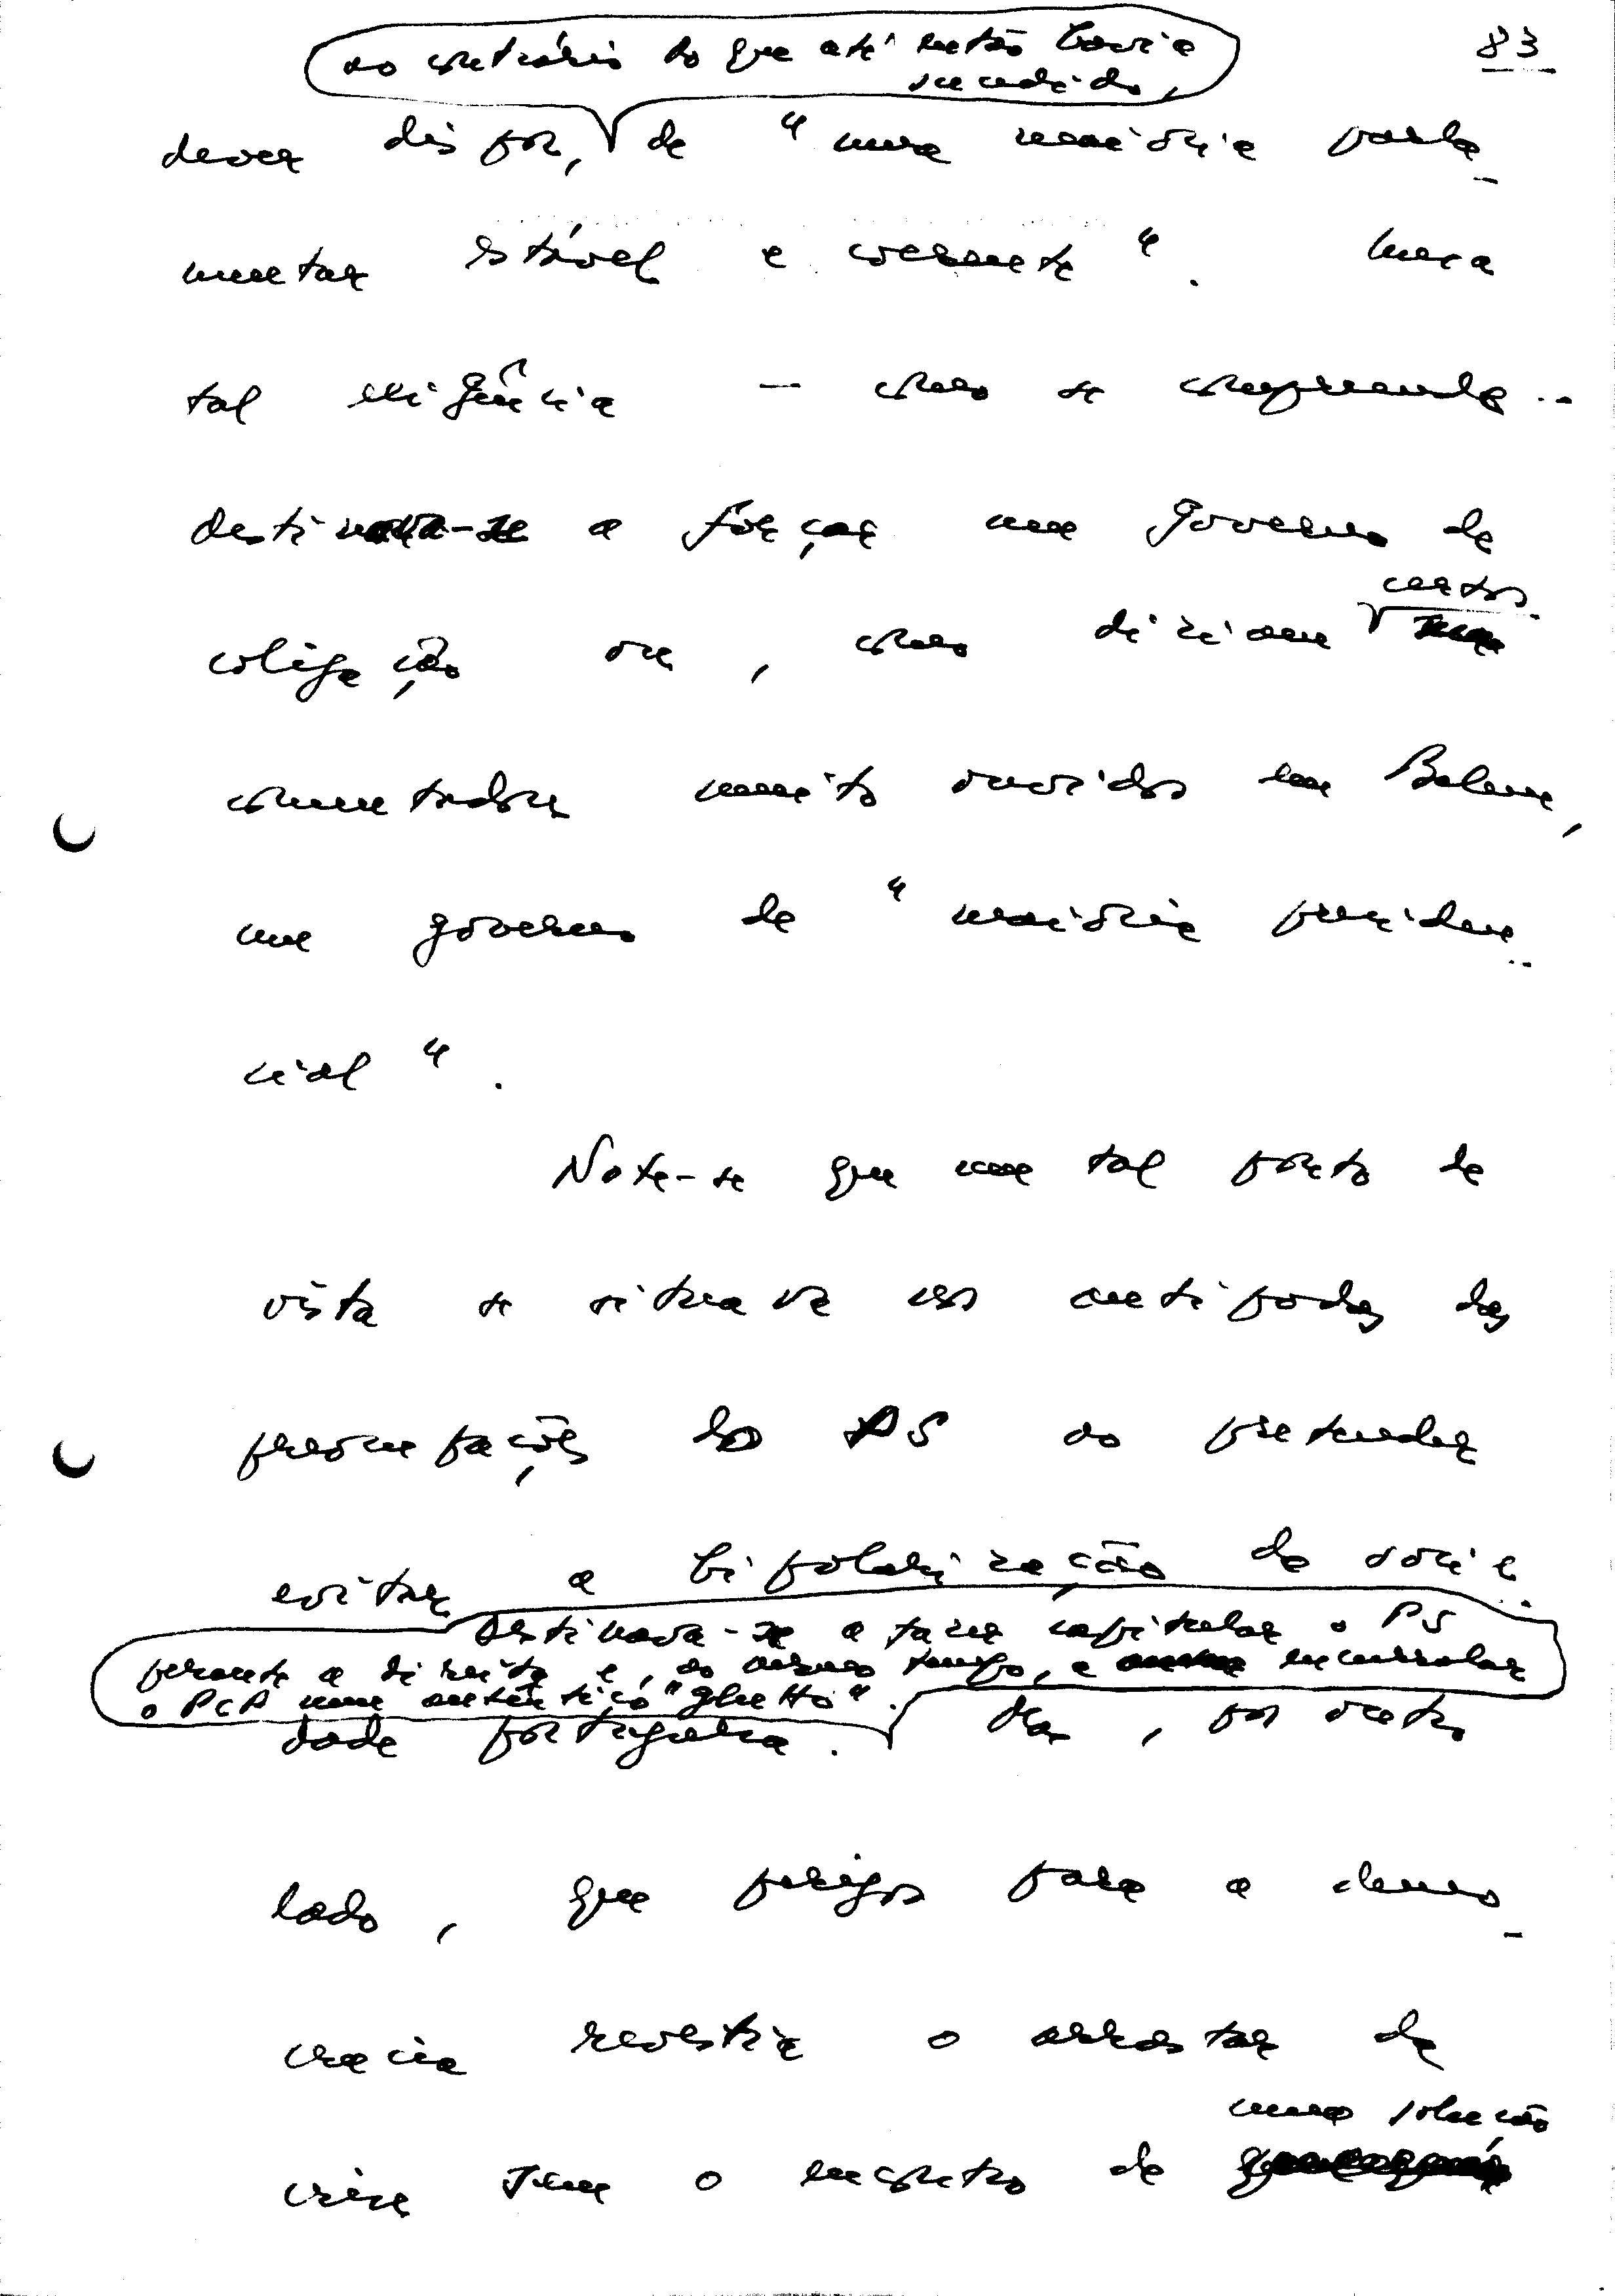 83
ao contrário do que até então havia
sucedido,
dever dispor, de "uma maioria parla-
mentar estável e coerente". Uma
tal exigência - como se compreende -
destinava-se a forçar um governo de
coligação ou, como diziam certos
comentadores muito ouvidos em Belem,
um governo de "maioria presiden-
cial".
Note-se que um tal ponto de
vista se situava nos antipodas das
preocupações do PS ao pretender
evitar a bipolarização da socie-
Destinava-se a fazer capitular o PS
perante a direita e, ao mesmo tempo, a encurralar
o PCP num autêntico "ghetto".
dade portuguesa. Mas, por outro
lado, que perigos para a demo-
cracia revestia o arrastar da
uma solução
crise sem o encontro de